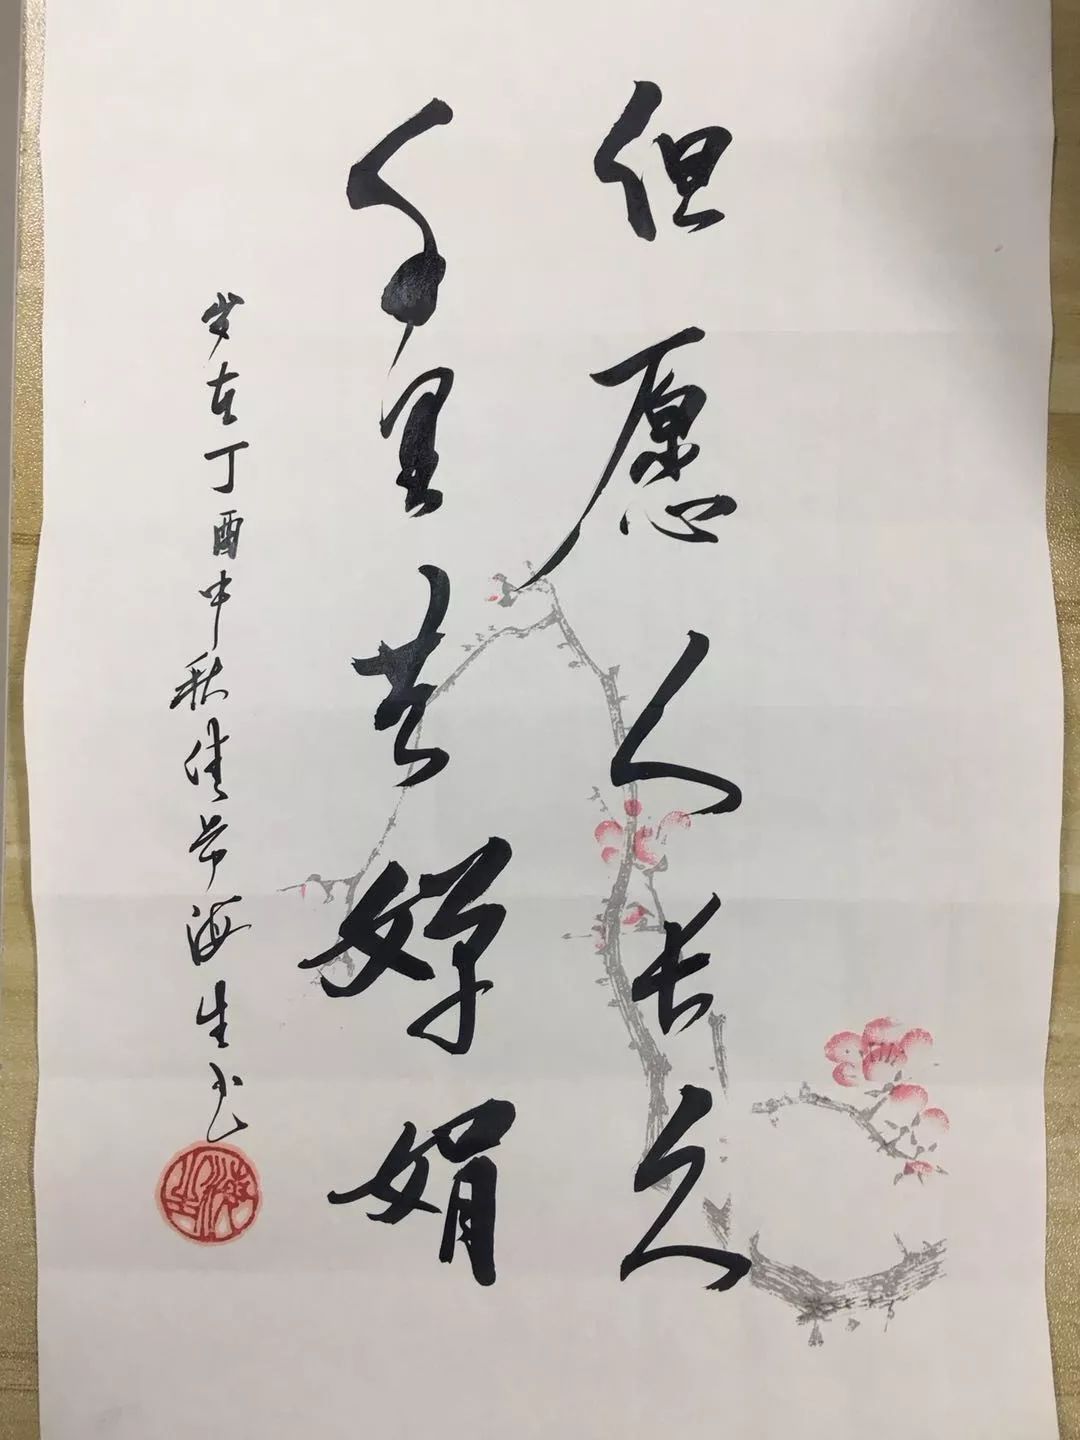 但愿人长久
千里共婵娟
岁在丁酉中秋佳节海生书